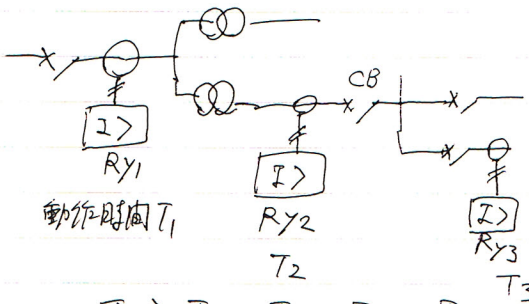 CB
I>
Ry1
動作時間T1
I>
Ry2
T2
I>
Ry3